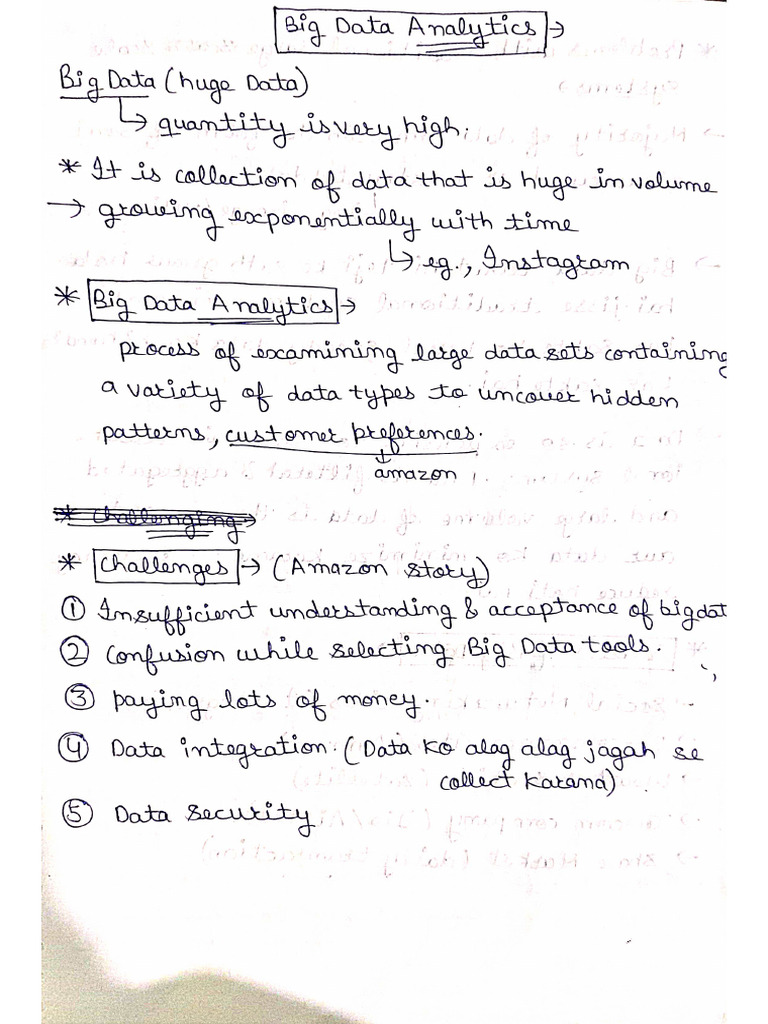 Big Data Analytics →
Big Data (huge Data)
↳ quantity is very high.
* It is collection of data that is huge in volume
→ growing exponentially with time
↳ eg., Instagram
* Big Data Analytics →
process of examining large data sets containing
a variety of data types to uncover hidden
patterns, customer preferences.
↓
amazon
* Challenging →
* Challenges → (Amazon story)
① Insufficient understanding & acceptance of big dat
② Confusion while selecting Big Data tools.
③ paying lots of money.
④ Data integration. (Data ko alag alag jagah se
collect karana)
⑤ Data security.